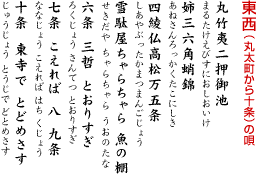 東西（丸太町から十条）の唄
丸竹夷二押御池
まるたけえびすにおしおいけ
姉三六角蛸錦
あねさんろっかくたこにしき
四綾仏高松万五条
しあやぶったかまつまんごじょう
雪駄屋ちゃらちゃら 魚の棚
せきだや ちゃらちゃら うおのたな
六条 三哲 とおりすぎ
ろくじょう さんてつ とおりすぎ
七条 こえれば 八 九条
ななじょう こえれば はち くじょう
十条 東寺で とどめさす
じゅうじょう とうじで どとめさす